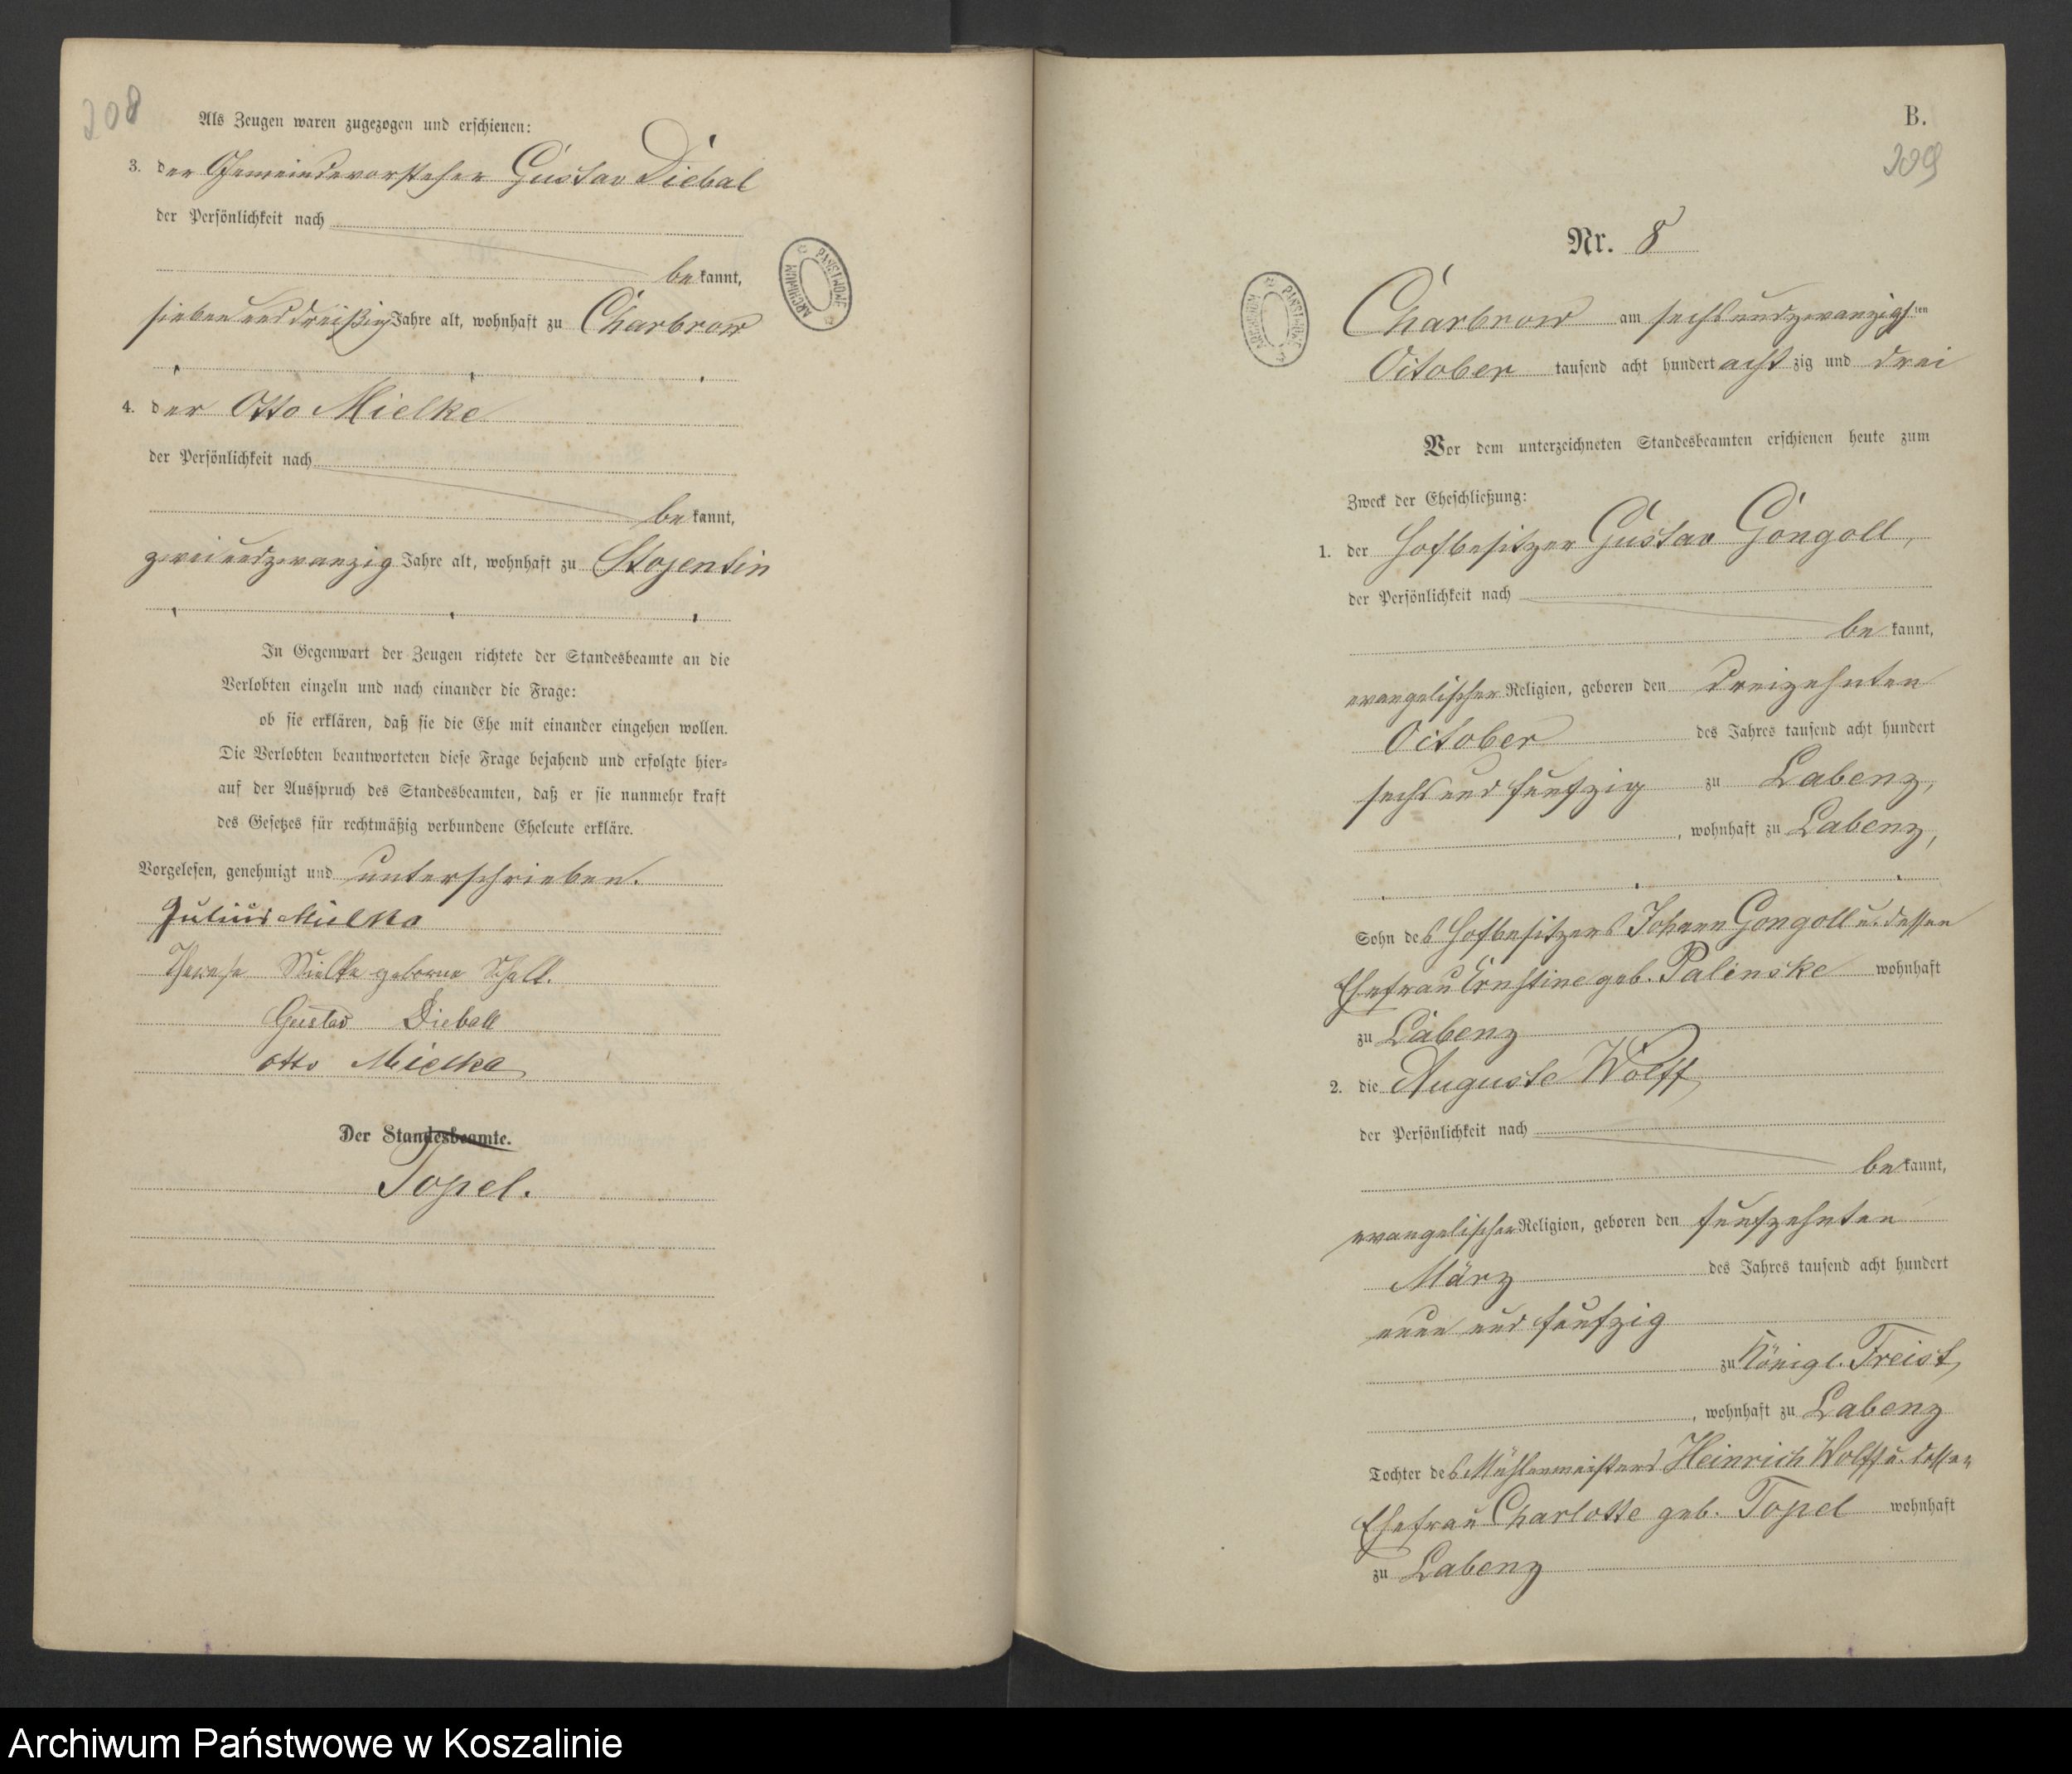 208
Als Zeugen waren zugezogen und erschienen:
3. der Gemeindevorsteher Gustav Diebal
der Persönlichkeit nach
be kannt,
sieben und dreißig Jahre alt, wohnhaft zu Charbrow
4. der Otto Mielke
der Persönlichkeit nach
be kannt,
zwei und zwanzig Jahre alt, wohnhaft zu Stojentin
In Gegenwart der Zeugen richtete der Standesbeamte an die
Verlobten einzeln und nach einander die Frage:
ob sie erklären, daß sie die Ehe mit einander eingehen wollen.
Die Verlobten beantworteten diese Frage bejahend und erfolgte hier=
auf der Ausspruch des Standesbeamten, daß er sie nunmehr kraft
des Gesetzes für rechtmäßig verbundene Eheleute erkläre.
Vorgelesen, genehmigt und unterschrieben.
Julius Mielke
Therese Mielke geborne Schall.
Gustav Dieball
Otto Mielke
Der Standesbeamte.
Topel.
ARCHIWUM PAŃSTWOWE
B.
209
Nr. 8
ARCHIWUM PAŃSTWOWE
Charbrow am sechsundzwanzigsten
October tausend acht hundert acht zig und drei
Vor dem unterzeichneten Standesbeamten erschienen heute zum
Zweck der Eheschließung:
1. der Hofbesitzer Gustav Gongoll,
der Persönlichkeit nach
be kannt,
evangelischer Religion, geboren den dreizehnten
October des Jahres tausend acht hundert
sechs und funfzig zu Labenz,
, wohnhaft zu Labenz,
Sohn des Hofbesitzers Johann Gongoll u. dessen
Ehefrau Ernstine geb. Palinske wohnhaft
zu Labenz
2. die Auguste Wolff
der Persönlichkeit nach
be kannt,
evangelischer Religion, geboren den funfzehnten
März des Jahres tausend acht hundert
neun und funfzig
zu Königl. Freist,
, wohnhaft zu Labenz
Tochter des Mühlenmeisters Heinrich Wolff u. dessen
Ehefrau Charlotte geb. Topel wohnhaft
zu Labenz
Archiwum Państwowe w Koszalinie